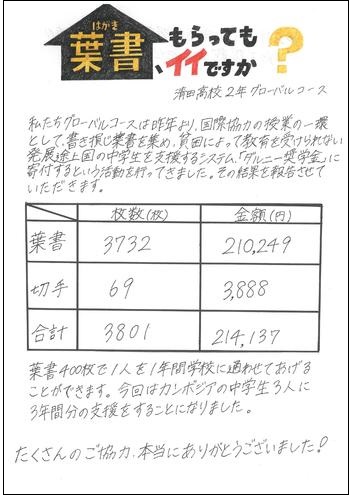 はがき
葉書、もらっても
イイですか?
清田高校2年グローバルコース
私たちグローバルコースは昨年より、国際協力の授業の一環
として、書き損じ葉書を集め、貧困によって教育を受けられない
発展途上国の中学生を支援するシステム、「ダルニー奨学金」に
寄付するという活動を行ってきました。その結果を報告させて
いただきます。
枚数(枚) 金額(円)
葉書 3732 210,249
切手 69 3,888
合計 3801 214,137
葉書400枚で1人を1年間学校に通わせてあげる
ことができます。今回はカンボジアの中学生3人に
3年間分の支援をすることになりました。
たくさんのご協力、本当にありがとうございました!